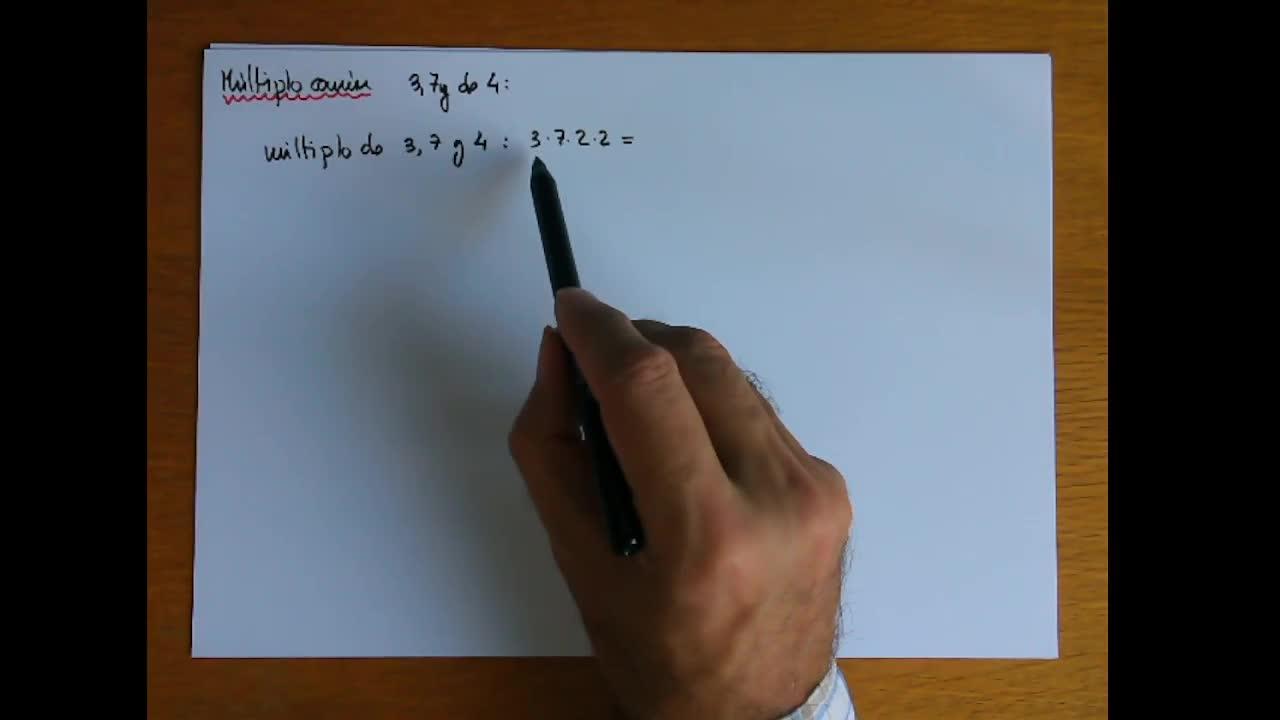 Múltiplo común 3,7 y de 4:
múltiplo de 3, 7 y 4 : 3·7·2·2 =